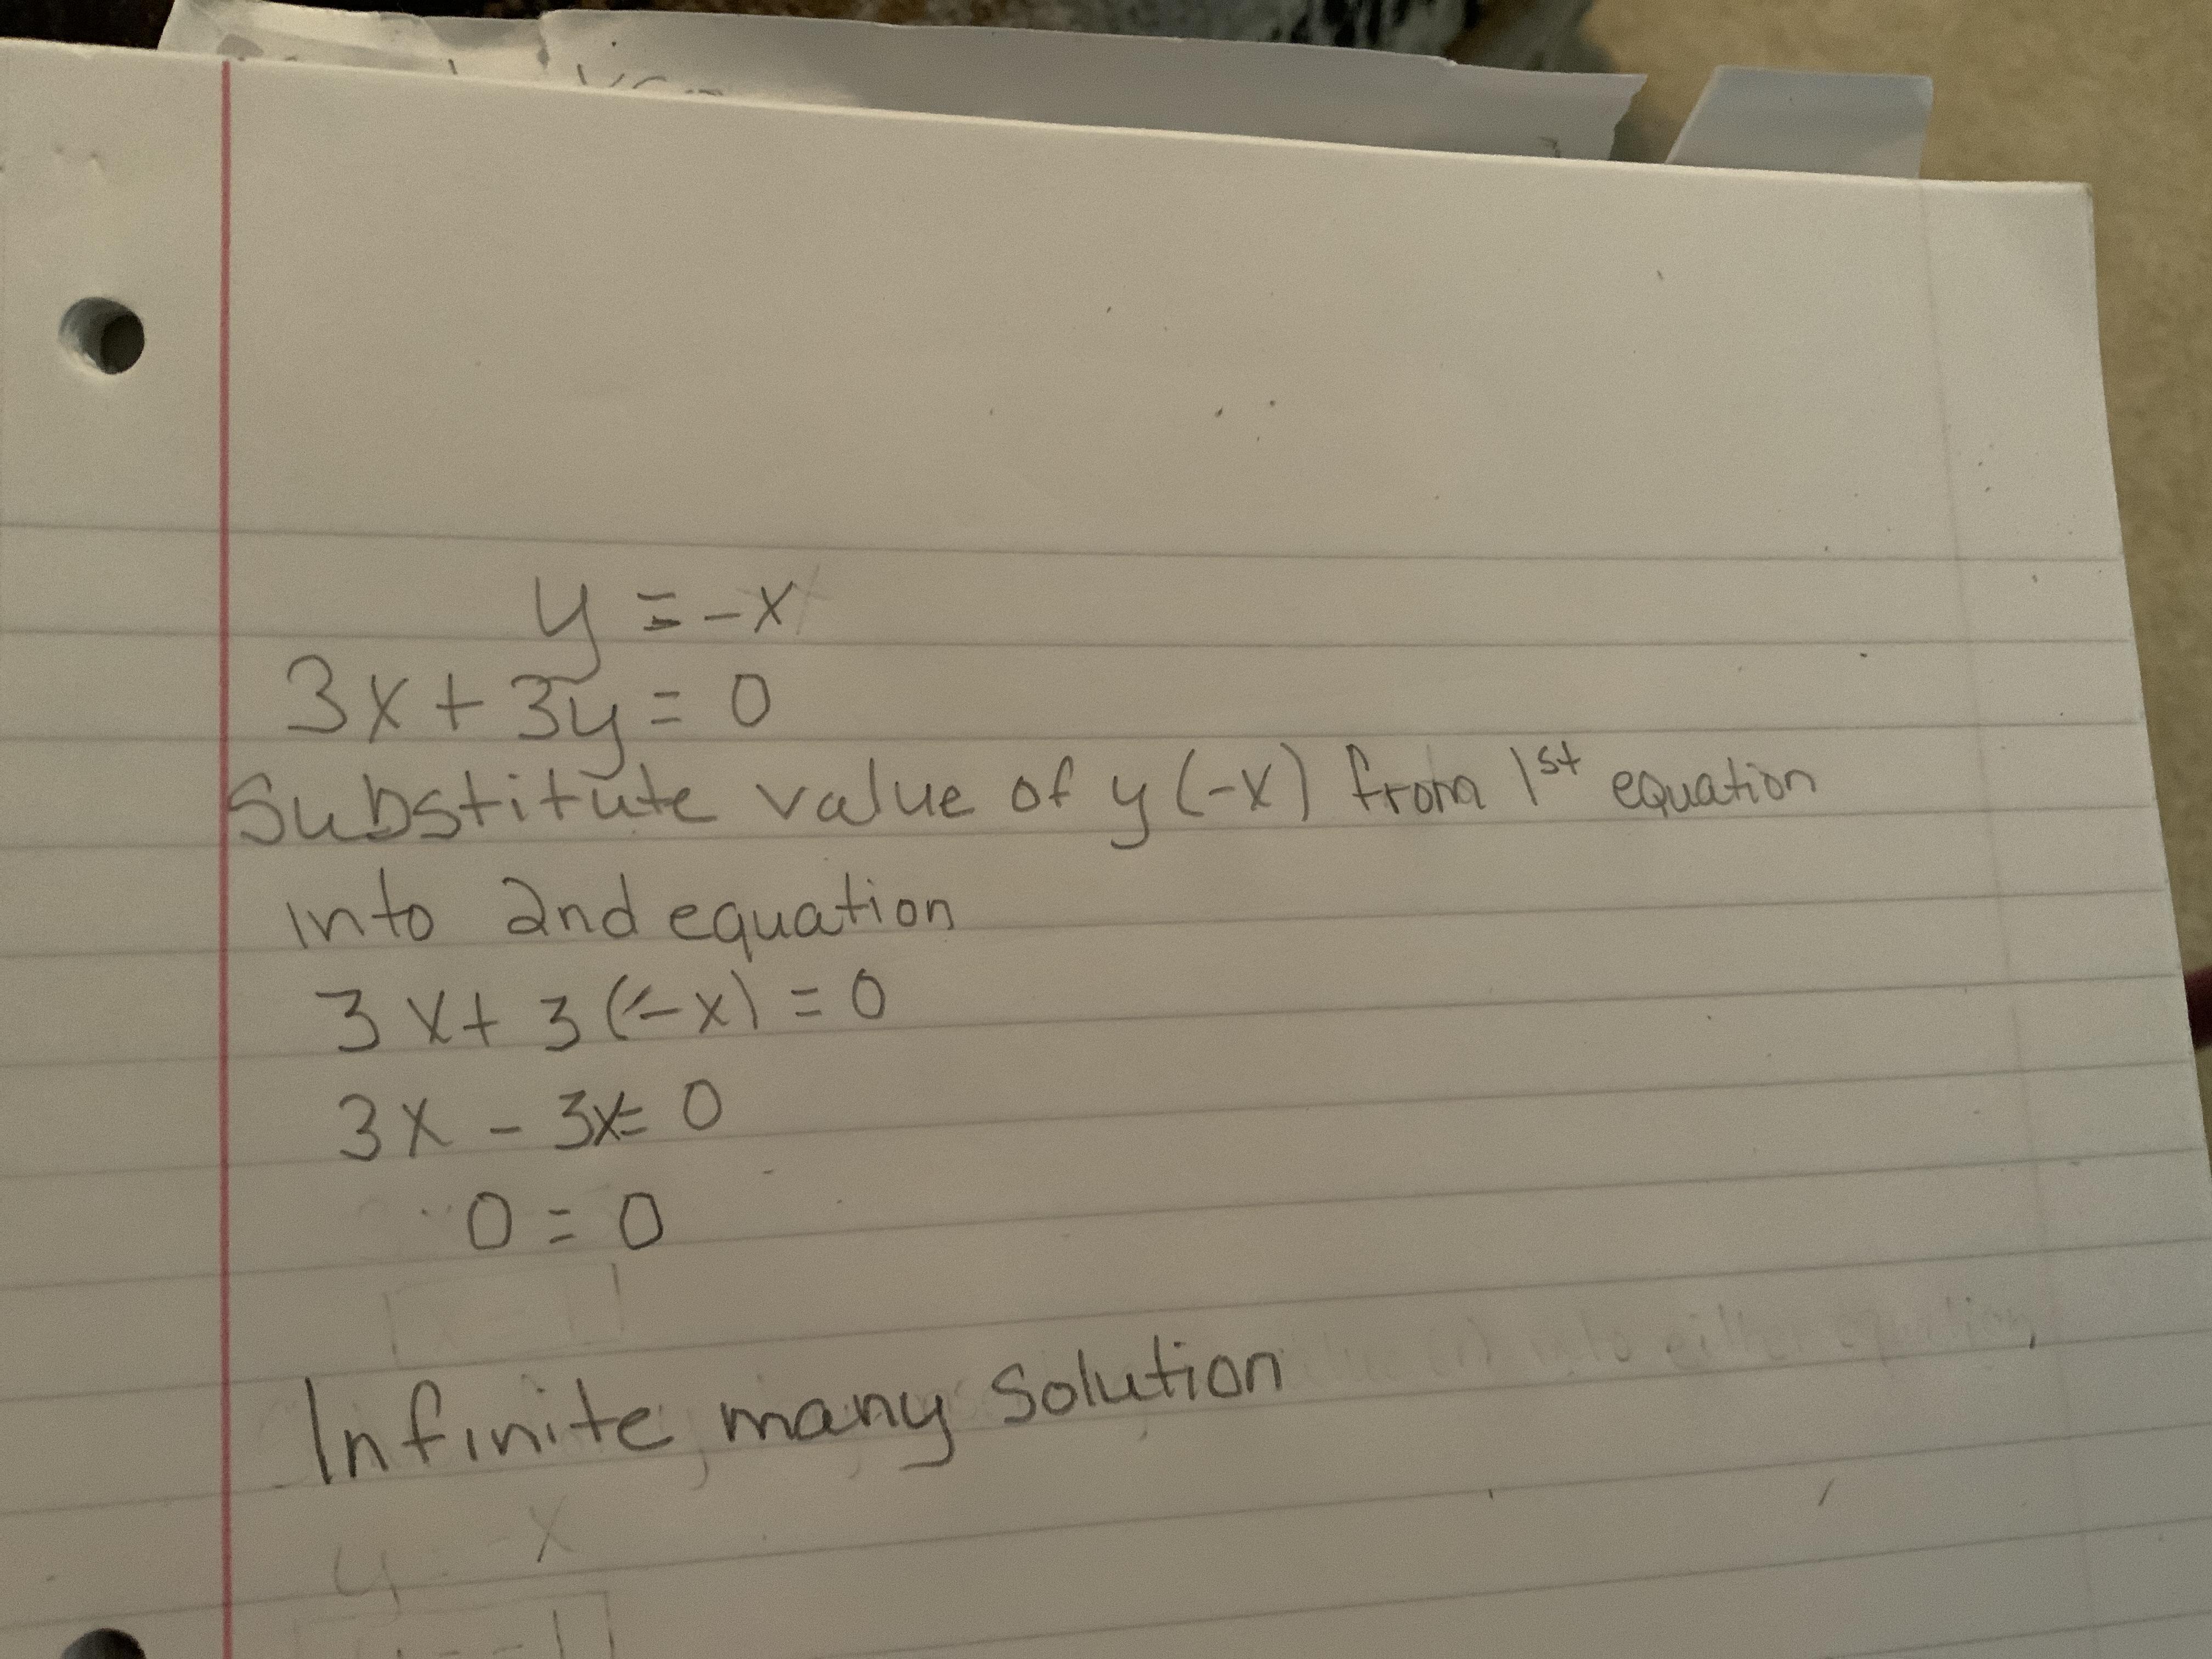 y = -x
3x + 3y = 0
Substitute value of y (-x) from 1st equation
into 2nd equation
3x + 3(-x) = 0
3x - 3x = 0
0 = 0
Infinite many solution
y = -x